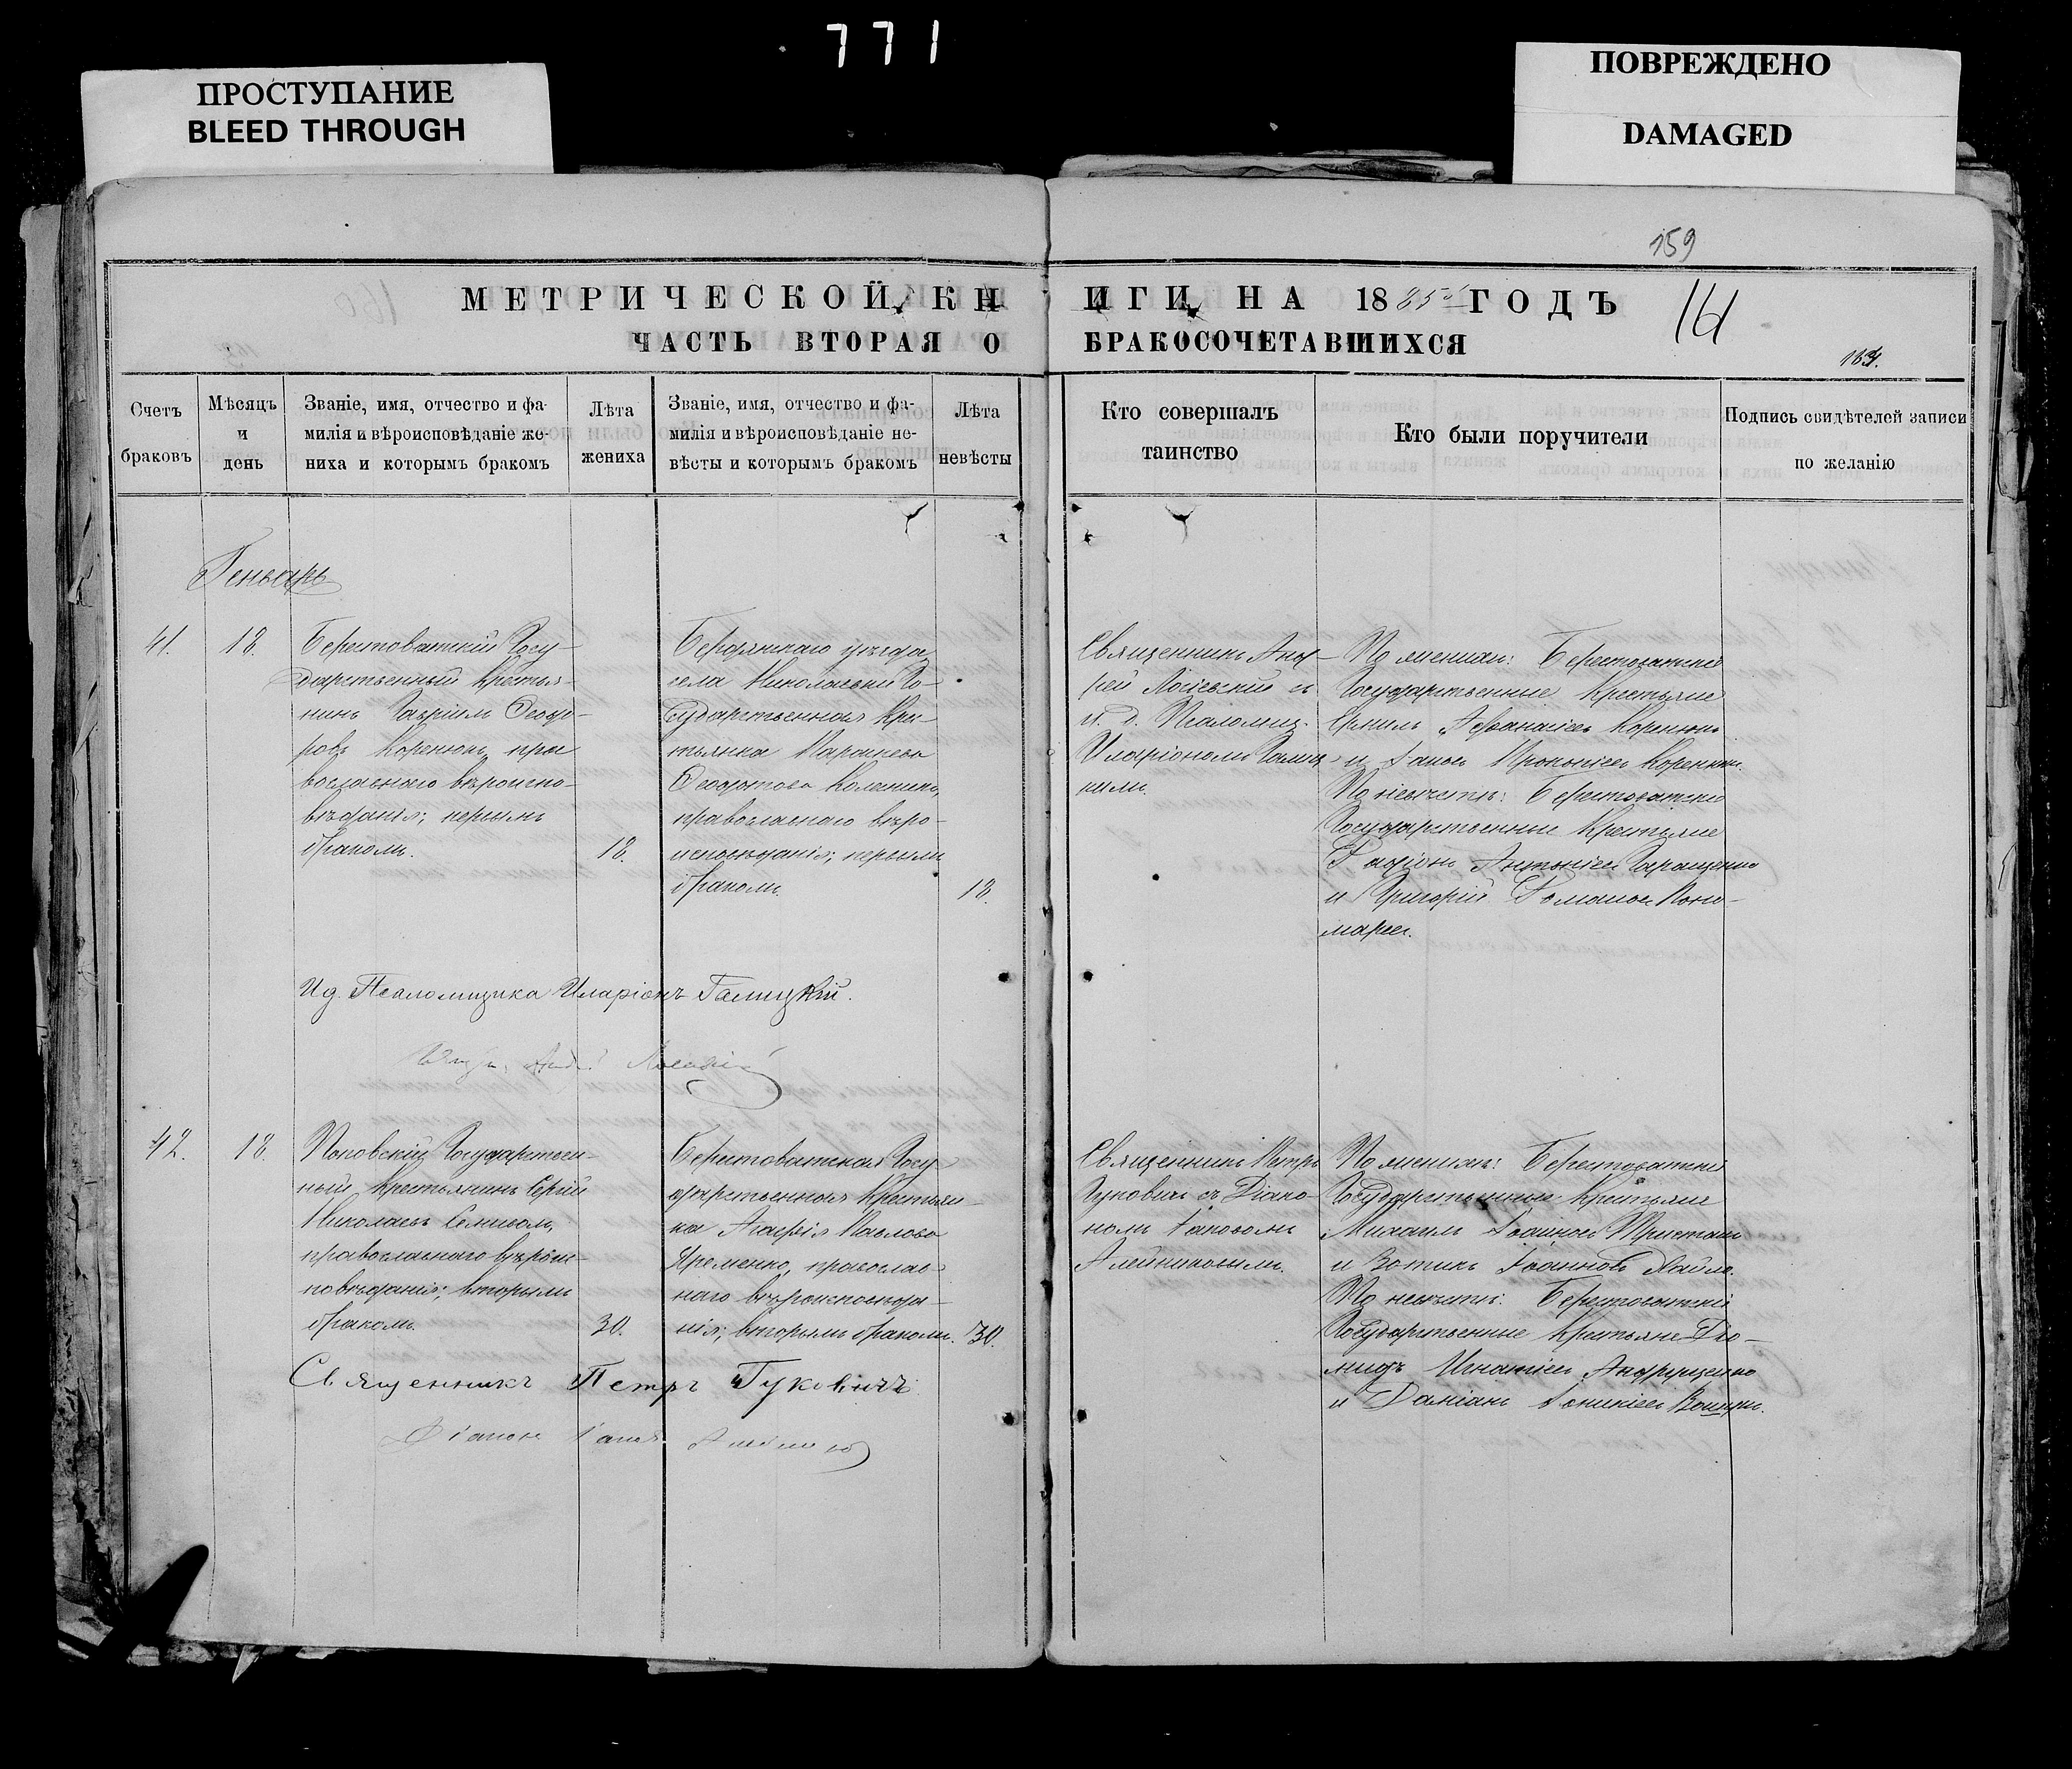 771
ПРОСТУПАНИЕ
BLEED THROUGH
ПОВРЕЖДЕНО
DAMAGED
159
МЕТРИЧЕСКОЙ КНИГИ НА 1885 ГОДЪ
161
ЧАСТЬ ВТОРАЯ О БРАКОСОЧЕТАВШИХСЯ
Счетъ браковъ
Мѣсяцъ и день
Званіе, имя, отчество и фа-
милія и вѣроисповѣданіе же-
ниха и которымъ бракомъ
Лѣта жениха
Званіе, имя, отчество и фа-
милія и вѣроисповѣданіе не-
вѣсты и которымъ бракомъ
Лѣта невѣсты
Кто совершалъ
таинство
Кто были поручители
Подпись свидѣтелей записи
по желанію
Геньарь
41.
18.
Берестоватскій Госу-
дарственный Крестья-
нинъ Гавріилъ Ѳеодо-
ровъ Коренюкъ, пра
вославнаго вѣроиспо-
вѣданія; первымъ
бракомъ.
18.
Бердянскаго уѣзда
села Николаевки Го-
сударственная Кре-
стьянка Параскева
Коленико,
православнаго вѣро-
исповѣданія; первымъ
бракомъ.
18.
Священникъ Анд-
рей Лосіевскій съ
и. д. Псаломщ.
Иларіономъ Галиц-
кимъ.
По женихѣ: Берестоватскіе
Государственные Крестьяне
Ермилъ Аѳанасіевъ Коренюкъ
и Іаковъ Прокопіевъ Коренюкъ.
По невѣстѣ: Берестоватскіе
Государственные Крестьяне
Родіонъ Антоніевъ Геращенко
и Григорій Романовъ Поно-
маревъ.
Ид. Псаломщика Иларіонъ Галицкій.
42.
18.
Поповскій Государствен-
ный Крестьянинъ Сергій
Николаевъ
православнаго вѣроис-
повѣданія; вторымъ
бракомъ.
30.
Берестоватская Госу-
дарственная Крестьян-
ка Агафія Павлова
Яременко, православ-
наго вѣроисповѣда-
нія; вторымъ бракомъ.
30.
Священникъ Петръ
Гуковичъ съ Діако-
номъ Іаковомъ
Алейниковымъ.
По женихѣ: Берестоватскіе
Государственные Крестьяне
Михаилъ Іоанновъ Тристанъ
и Зотикъ Іоанновъ
По невѣстѣ: Берестоватскіе
Государственные Крестьяне Діо-
мидъ Игнатіевъ Андрущенко
и Даміанъ Іоникіевъ
Священникъ Петръ Гуковичъ
Діаконъ Іаковъ